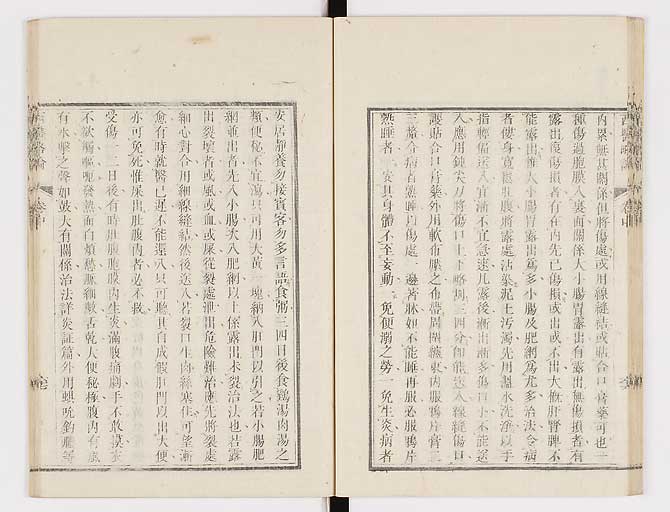 內臟無甚關係但將傷處或用線縫結或貼合口膏藥可也一
種傷過胞膜入裏面關係大小腸胃露出有露出無傷損者有
露出復傷損者有在內先已傷損或出或不出大概肝腎脾不
能露出惟大小腸胃露出為多小腸及肥網為尤多治法令病
者僂身寬鬆肚腹將露處沾染泥土污濁先用溫水洗淨以手
指輕偪送入宜漸不宜急速凡露後漸出漸多傷口小不能送
入應用鈍尖刀將傷口上下略割三四分即能送入線縫傷口
護貼合口膏藥外用軟布紮之布帶周圍纏束內服鴉片膏三
三釐合病者熟睡以傷處一邊著牀如不能睡再服必服鴉片
熟睡者一安其身體不至妄動一免便溺之勞一免生炎病者
安居靜養勿接賓客勿多言語食粥三四日後食鷄湯肉湯之
類便秘不宜瀉只可用大黃一塊納入肛門以引之若小腸肥
網並出者先入小腸次入肥網以上係露出未裂治法也若露
出裂壞者或風或血或屎從裂處泄出危險難治應先將裂處
細心對合用細線縫結然後送入若裂口生肉絲塞住可望漸
愈有時就醫已遲不能還入只可聽其自成假肛門以出大便
亦可免死惟屎出肚腹內者必不救
受傷一二日後有時肚腹胞膜內生炎滿腹痛剧手不敢摸亥
不欲嘔呃發熱面白煩懣脈細數舌乾大便秘極腹內有風
有水擊之聲如鼓大有關係治法詳炎証篇外用蜞吮釣膿等